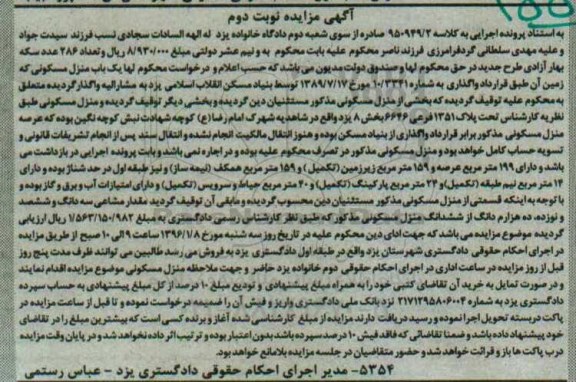 آگهی مزایده نوبت دوم
به استناد پرونده اجرایی به کلاسه ۹۵۰۹۴۹/۲ صادره از سوی شعبه دوم دادگاه خانواده یزد له الهه السادات سجادی نسب فرزند سیدت جواد
و علیه مهدی سلطانی گردفرامرزی فرزند ناصر محکوم علیه بابت محکوم به و نیم عشر دولتی مبلغ ۸/۹۳۰/۰۰۰ ریال و تعداد ۲۸۶ عدد سکه
بهار آزادی طرح جدید در حق محکوم لها و صندوق دولت مدیون می باشد که حسب اعلام و درخواست محکوم لها یک باب منزل مسکونی که
زمین آن طبق قرارداد واگذاری به شماره ۱۰/۳۳۴۱ مورخ ۱۳۸۹/۷/۱۷ توسط بنیاد مسکن انقلاب اسلامی یزد به مشارالیه واگذار گردیده متعلق
به محکوم علیه توقیف گردیده که بخشی از منزل مسکونی مذکور مستثنیان دین گردیده و بخشی دیگر توقیف گردیده و منزل مسکونی طبق
نظریه کارشناس تحت پلاک ۱۳۵۱ فرعی ۶۶۴۶ بخش ۸ یزد واقع در شاهدیه شهرک امام رضا (ع) کوچه شهادت نبش کوچه نگین بوده که عرصه
منزل مسکونی مذکور برابر قرارداد واگذاری از بنیاد مسکن بوده و هنوز انتقال مالکیت انجام نشده و انتقال سند پس از انجام تشریفات قانونی و
تسویه حساب کامل خواهد بود و منزل مسکونی مذکور در تصرف محکوم علیه بوده و در اجاره نمی باشد و بابت پرونده اجرایی در بازداشت می
باشد و دارای ۱۹۹ متر مربع عرصه و ۱۵۹ متر مربع زیرزمین (تکمیل) و ۱۵۹ متر مربع همکف (نیمه ساز) و نیز طبقه اول در حد شناژ بوده و دارای
۱۴ متر مربع نیم طبقه (تکمیل) و ۲۴ متر مربع پارکینگ (تکمیل) و ۴۰ متر مربع حیاط و سرویس (تکمیل) و دارای امتیازات آب و برق و گاز بوده و
با توجه به اینکه قسمتی از منزل مسکونی مذکور مستثنیان دین محسوب گردیده و مابقی آن توقیف گردید مقدار مشاعی سه دانگ و ششصد
و نوزده، ده هزارم دانگ از ششدانگ منزل مسکونی مذکور که طبق نظر کارشناس رسمی دادگستری به مبلغ ۱/۵۶۳/۱۵۰/۹۸۲ ریال ارزیابی
گردیده موضوع مزایده می باشد که جهت ادای دین محکوم علیه در تاریخ روز سه شنبه مورخ ۱۳۹۶/۱/۸ ساعت ۹ الی ۱۰ صبح از طریق مزایده
در اجرای احکام حقوقی دادگستری شهرستان یزد واقع در طبقه اول دادگستری یزد به فروش می رسد طالبین می توانند ظرف مدت پنج روز
قبل از روز مزایده در ساعت اداری در اجرای احکام حقوقی دوم خانواده یزد حاضر و جهت ملاحظه منزل مسکونی موضوع مزایده اقدام نمایند
و در صورت تمایل به خرید آن تقاضای کتبی خود را به همراه مبلغ پیشنهادی و تودیع مبلغ ۱۰ درصد از کل مبلغ پیشنهادی به حساب سپرده
دادگستری یزد به شماره ۲۱۷۱۲۹۵۸۰۶۰۰۴ نزد بانک ملی دادگستری واریز و فیش آن را ضمیمه درخواست نموده و تا قبل از ساعت مزایده در
پاکت دربسته تحویل اجرا نموده و رسید دریافت دارند مزایده از مبلغ کارشناسی شده آغاز و برنده کسی است که بیشترین مبلغ را در تقاضای
خود پیشنهاد داده باشد و ضمنا تقاضاتی که فاقد فیش ۱۰ درصد سپرده باشد بدون اعتبار بوده و ترتیب اثر داده نخواهد شد و در پایان وقت مزایده
درب پاکت ها باز و قرائت خواهد شد و حضور متقاضیان در جلسه مزایده بلامانع خواهد بود.
۵۳۵۴- مدیر اجرای احکام حقوقی دادگستری یزد - عباس رستمی